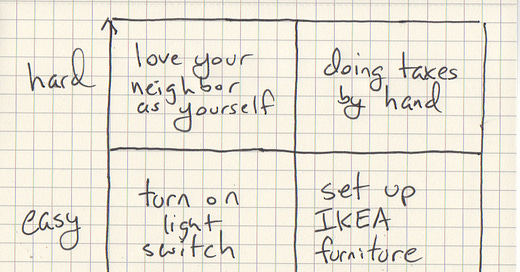 hard
love your
neighbor
as yourself
doing taxes
by hand
easy
turn on
light
switch
set up
IKEA
furniture